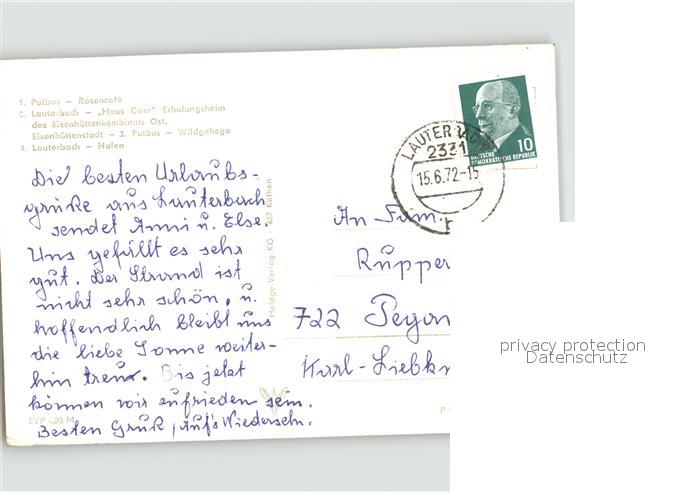 1. Putbus – Rosencafé
2. Lauterbach – „Haus Goor" Erholungsheim
des Eisenhüttenkombinats Ost,
Eisenhüttenstadt – 3. Putbus – Wildgehege
4. Lauterbach – Hafen
Die besten Urlaubs-
grüße aus Lauterbach
sendet Anni u. Else.
Uns gefällt es sehr
gut. Der Strand ist
nicht sehr schön, u.
hoffendlich bleibt uns
die liebe Sonne weiter-
hin treu. Bis jetzt
können wir zufrieden sein.
Besten Gruß, Auf's Wiedersehn.
EVP -,20 M
437 Köthen
LAUTERBACH
2331
15.6.72-15
10
DEUTSCHE
DEMOKRATISCHE REPUBLIK
An Fam.
Rupper
722 Pegau
Karl-Liebkn
P
privacy protection
Datenschutz